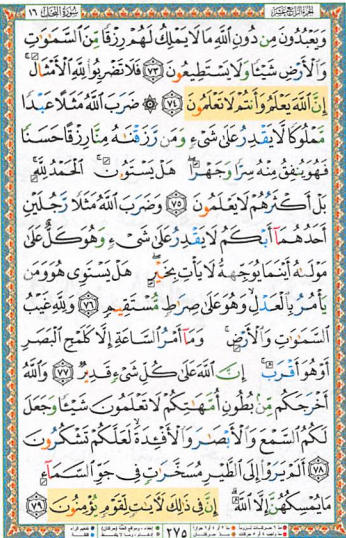 الجزء الرابع عشر سورة النحل ١٦
وَيَعْبُدُونَ مِن دُونِ اللَّهِ مَا لَا يَمْلِكُ لَهُمْ رِزْقًا مِّنَ السَّمَٰوَٰتِ
وَالْأَرْضِ شَيْئًا وَلَا يَسْتَطِيعُونَ ﴿٧٣﴾ فَلَا تَضْرِبُوا لِلَّهِ الْأَمْثَالَ
إِنَّ اللَّهَ يَعْلَمُ وَأَنتُمْ لَا تَعْلَمُونَ ﴿٧٤﴾ ۞ ضَرَبَ اللَّهُ مَثَلًا عَبْدًا
مَّمْلُوكًا لَّا يَقْدِرُ عَلَىٰ شَيْءٍ وَمَن رَّزَقْنَٰهُ مِنَّا رِزْقًا حَسَنًا
فَهُوَ يُنفِقُ مِنْهُ سِرًّا وَجَهْرًا هَلْ يَسْتَوُونَ الْحَمْدُ لِلَّهِ
بَلْ أَكْثَرُهُمْ لَا يَعْلَمُونَ ﴿٧٥﴾ وَضَرَبَ اللَّهُ مَثَلًا رَّجُلَيْنِ
أَحَدُهُمَا أَبْكَمُ لَا يَقْدِرُ عَلَىٰ شَيْءٍ وَهُوَ كَلٌّ عَلَىٰ
مَوْلَىٰهُ أَيْنَمَا يُوَجِّههُّ لَا يَأْتِ بِخَيْرٍ هَلْ يَسْتَوِي هُوَ وَمَن
يَأْمُرُ بِالْعَدْلِ وَهُوَ عَلَىٰ صِرَٰطٍ مُّسْتَقِيمٍ ﴿٧٦﴾ وَلِلَّهِ غَيْبُ
السَّمَٰوَٰتِ وَالْأَرْضِ وَمَا أَمْرُ السَّاعَةِ إِلَّا كَلَمْحِ الْبَصَرِ
أَوْ هُوَ أَقْرَبُ إِنَّ اللَّهَ عَلَىٰ كُلِّ شَيْءٍ قَدِيرٌ ﴿٧٧﴾ وَاللَّهُ
أَخْرَجَكُم مِّن بُطُونِ أُمَّهَٰتِكُمْ لَا تَعْلَمُونَ شَيْئًا وَجَعَلَ
لَكُمُ السَّمْعَ وَالْأَبْصَٰرَ وَالْأَفْئِدَةَ لَعَلَّكُمْ تَشْكُرُونَ
﴿٧٨﴾ أَلَمْ يَرَوْا إِلَى الطَّيْرِ مُسَخَّرَٰتٍ فِي جَوِّ السَّمَاءِ
مَا يُمْسِكُهُنَّ إِلَّا اللَّهُ إِنَّ فِي ذَٰلِكَ لَآيَٰتٍ لِّقَوْمٍ يُؤْمِنُونَ ﴿٧٩﴾
٢٧٥